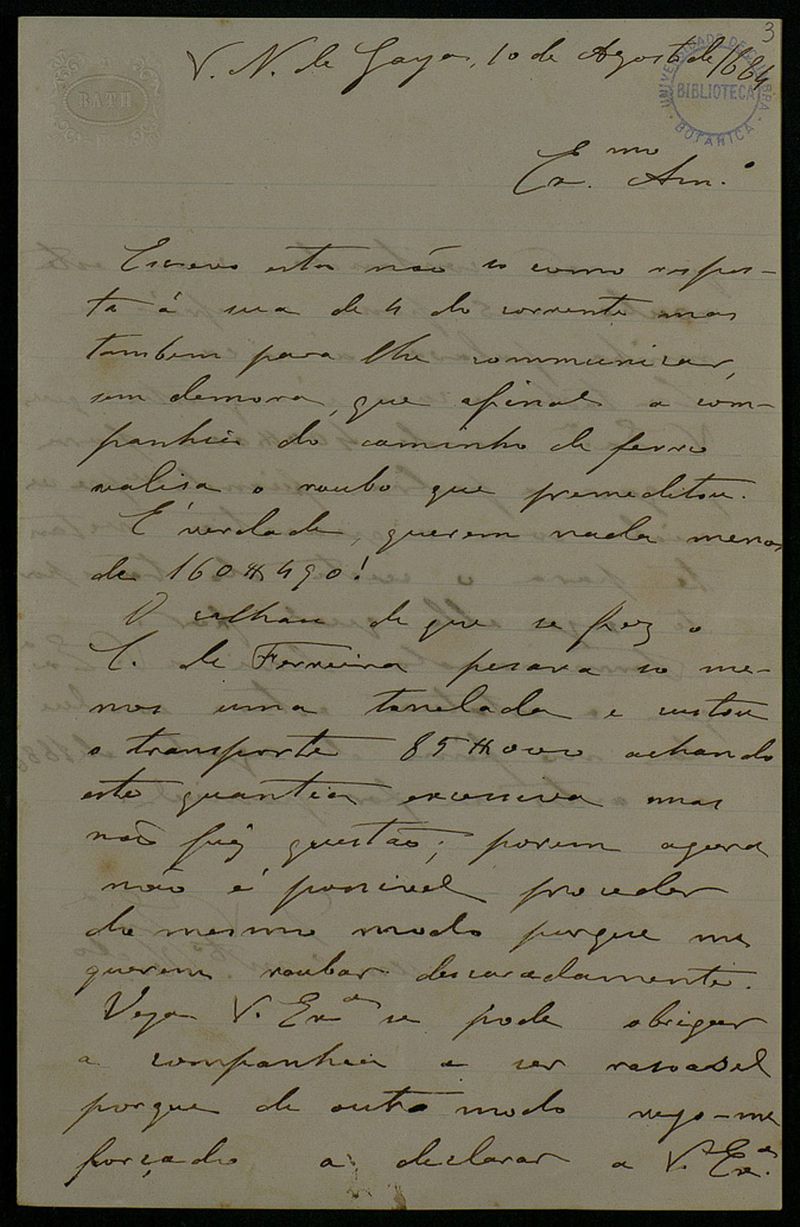 3
BATH
UNIVERSIDADE DE COIMBRA
BIBLIOTECA
BOTANICA
V. N. de Gaya, 10 de Agosto de 1884
Ex.mo Am.º
Escrevo esta não só como respos-
ta á sua de 4 do corrente mas
tambem para lhe communicar,
sem demora, que afinal a com-
panhia do caminho de ferro
realisa o roubo que premeditou.
E' verdade, querem nada menos
de 160$490!
O calhau de que se fez o
C. de Ferreira pesava so me-
nos uma tonelada e custou
o transporte 85$000 achando
esta quantia excessiva mas
não fiz questão; porem agora
não é possivel proceder
do mesmo modo porque me
querem roubar descaradamente.
Veja V. Ex.ª se pode obrigar
a companhia a ser rasoavel
porque de outro modo vejo-me
forçado a declarar a V. Ex.ª